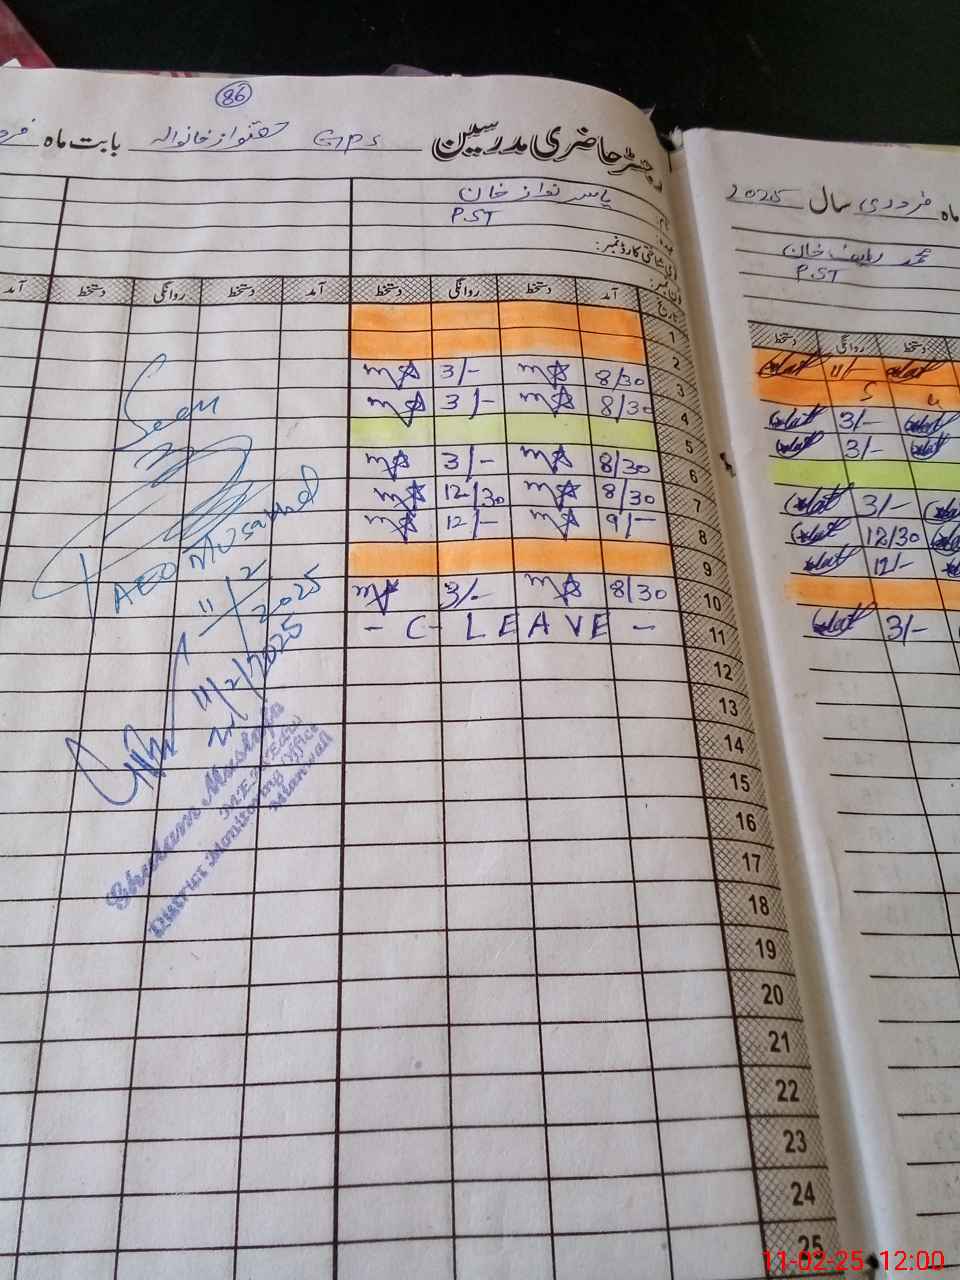 86
رجسٹر حاضری مدرسین GPS حقنواز خانوالہ بابت ماہ
یاسر نواز خان
P.ST
نام:
عہدہ:
قومی شناختی کارڈ نمبر:
فون نمبر:
تاریخ آمد دستخط روانگی دستخط آمد دستخط روانگی دستخط آمد
1
2
3 8/30 3/-
4 8/30 3/-
5
6 8/30 3/-
7 8/30 12/30
8 9/- 12/-
9
10 8/30 3/-
11 - C- LEAVE -
12
13
14
15
16
17
18
19
20
21
22
23
24
25
Seen
AEO Musakhel
11/2/2025
11/2/2025
Ghulam Mustafa
District Monitoring Office
Mianwali
ماہ فروری سال 2025
P.ST
دستخط روانگی دستخط
11/-
3/-
3/-
3/-
12/30
12/-
3/-
11-02-25 12:00